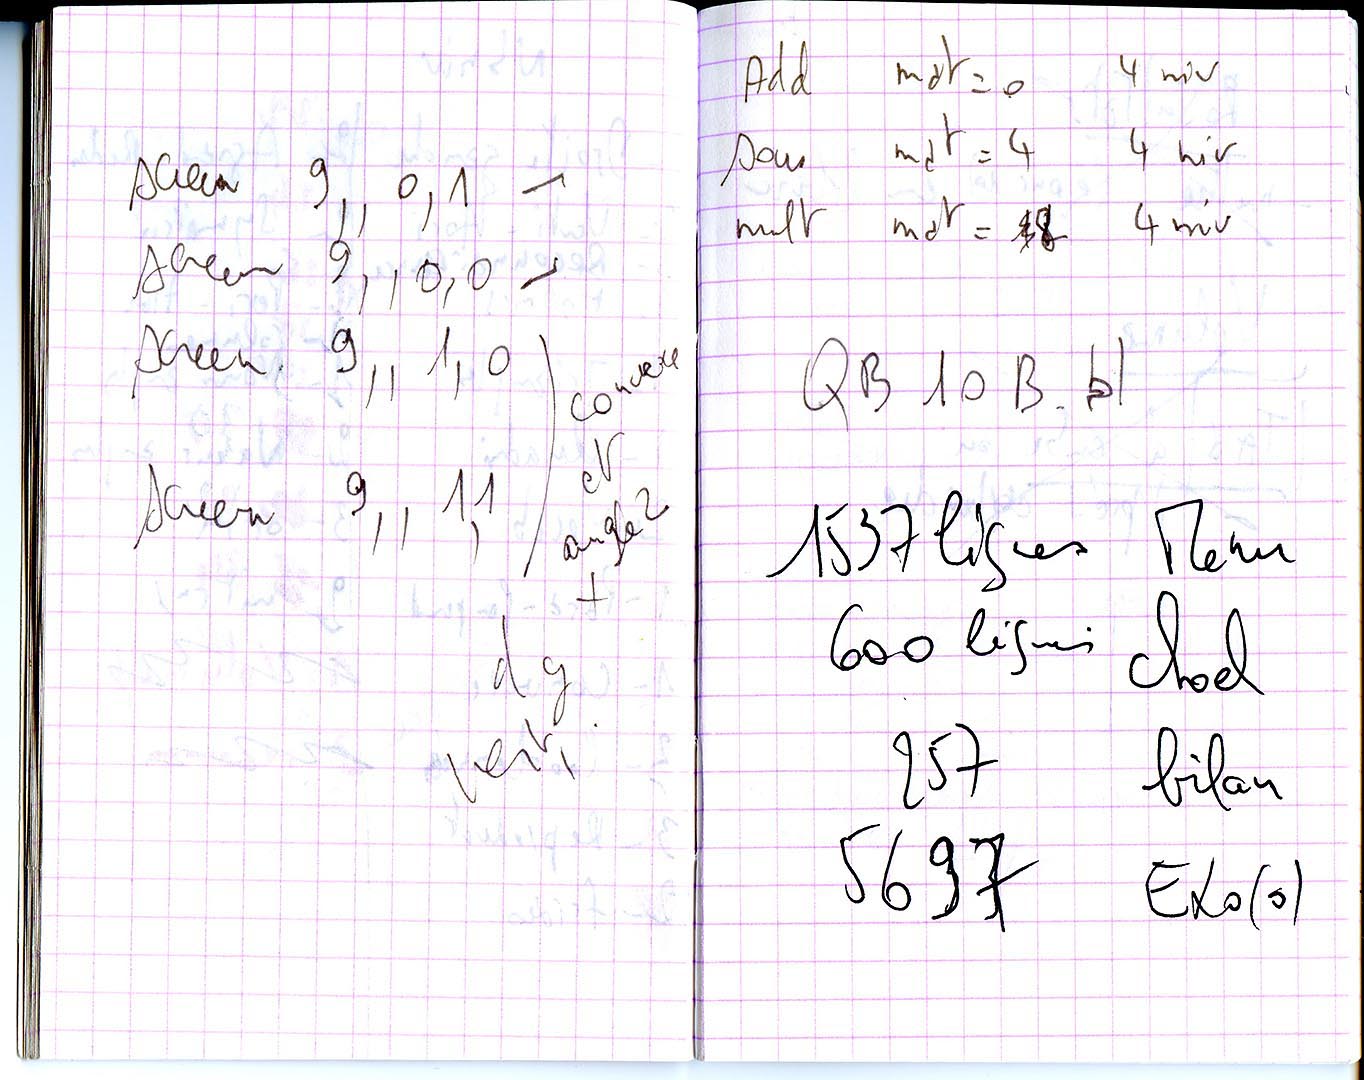 screen 9,, 0,1
screen 9,, 0,0
screen 9,, 1,0
screen 9,, 1,1
convexe
et
angle 2
+
dg
vert.
Add mdt = 0 4 niv
sous mdt = 4 4 niv
mult mdt = 4 niv
QB 10 B. bl
1537 lignes Menu
600 lignes choel
257 bilan
5697 EXo(s)